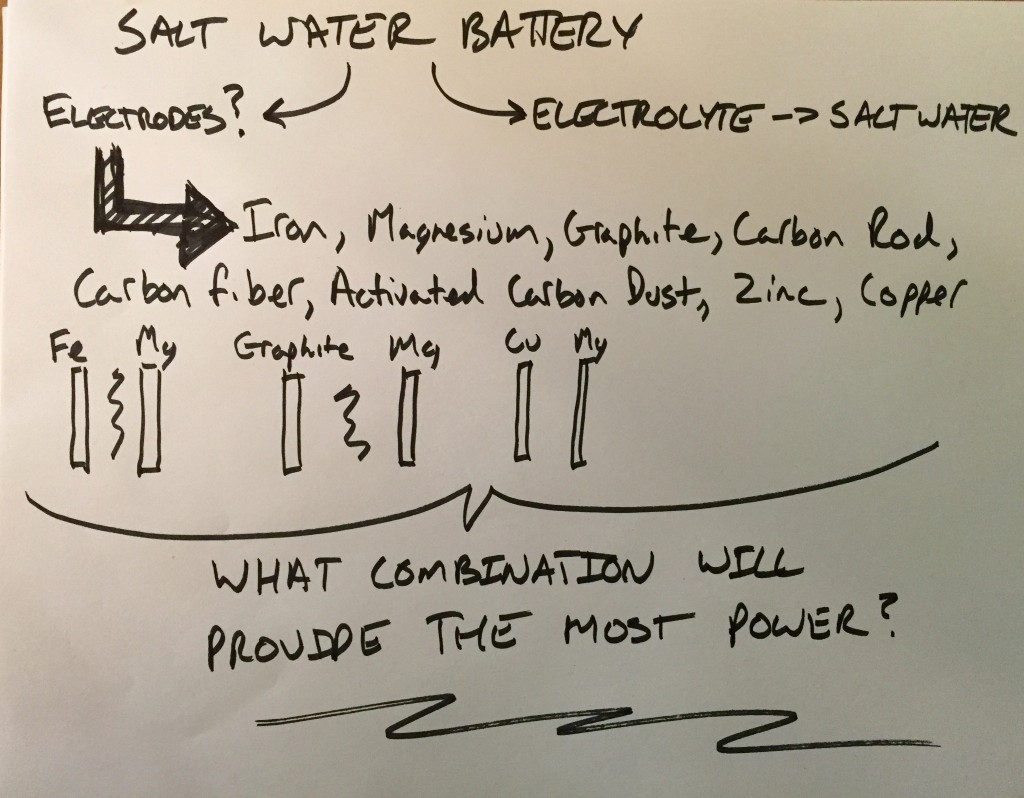 SALT WATER BATTERY
ELECTRODES?
ELECTROLYTE -> SALT WATER
Iron, Magnesium, Graphite, Carbon Rod,
Carbon fiber, Activated Carbon Dust, Zinc, Copper
Fe Mg Graphite Mg Cu Mg
WHAT COMBINATION WILL
PROVIDE THE MOST POWER?